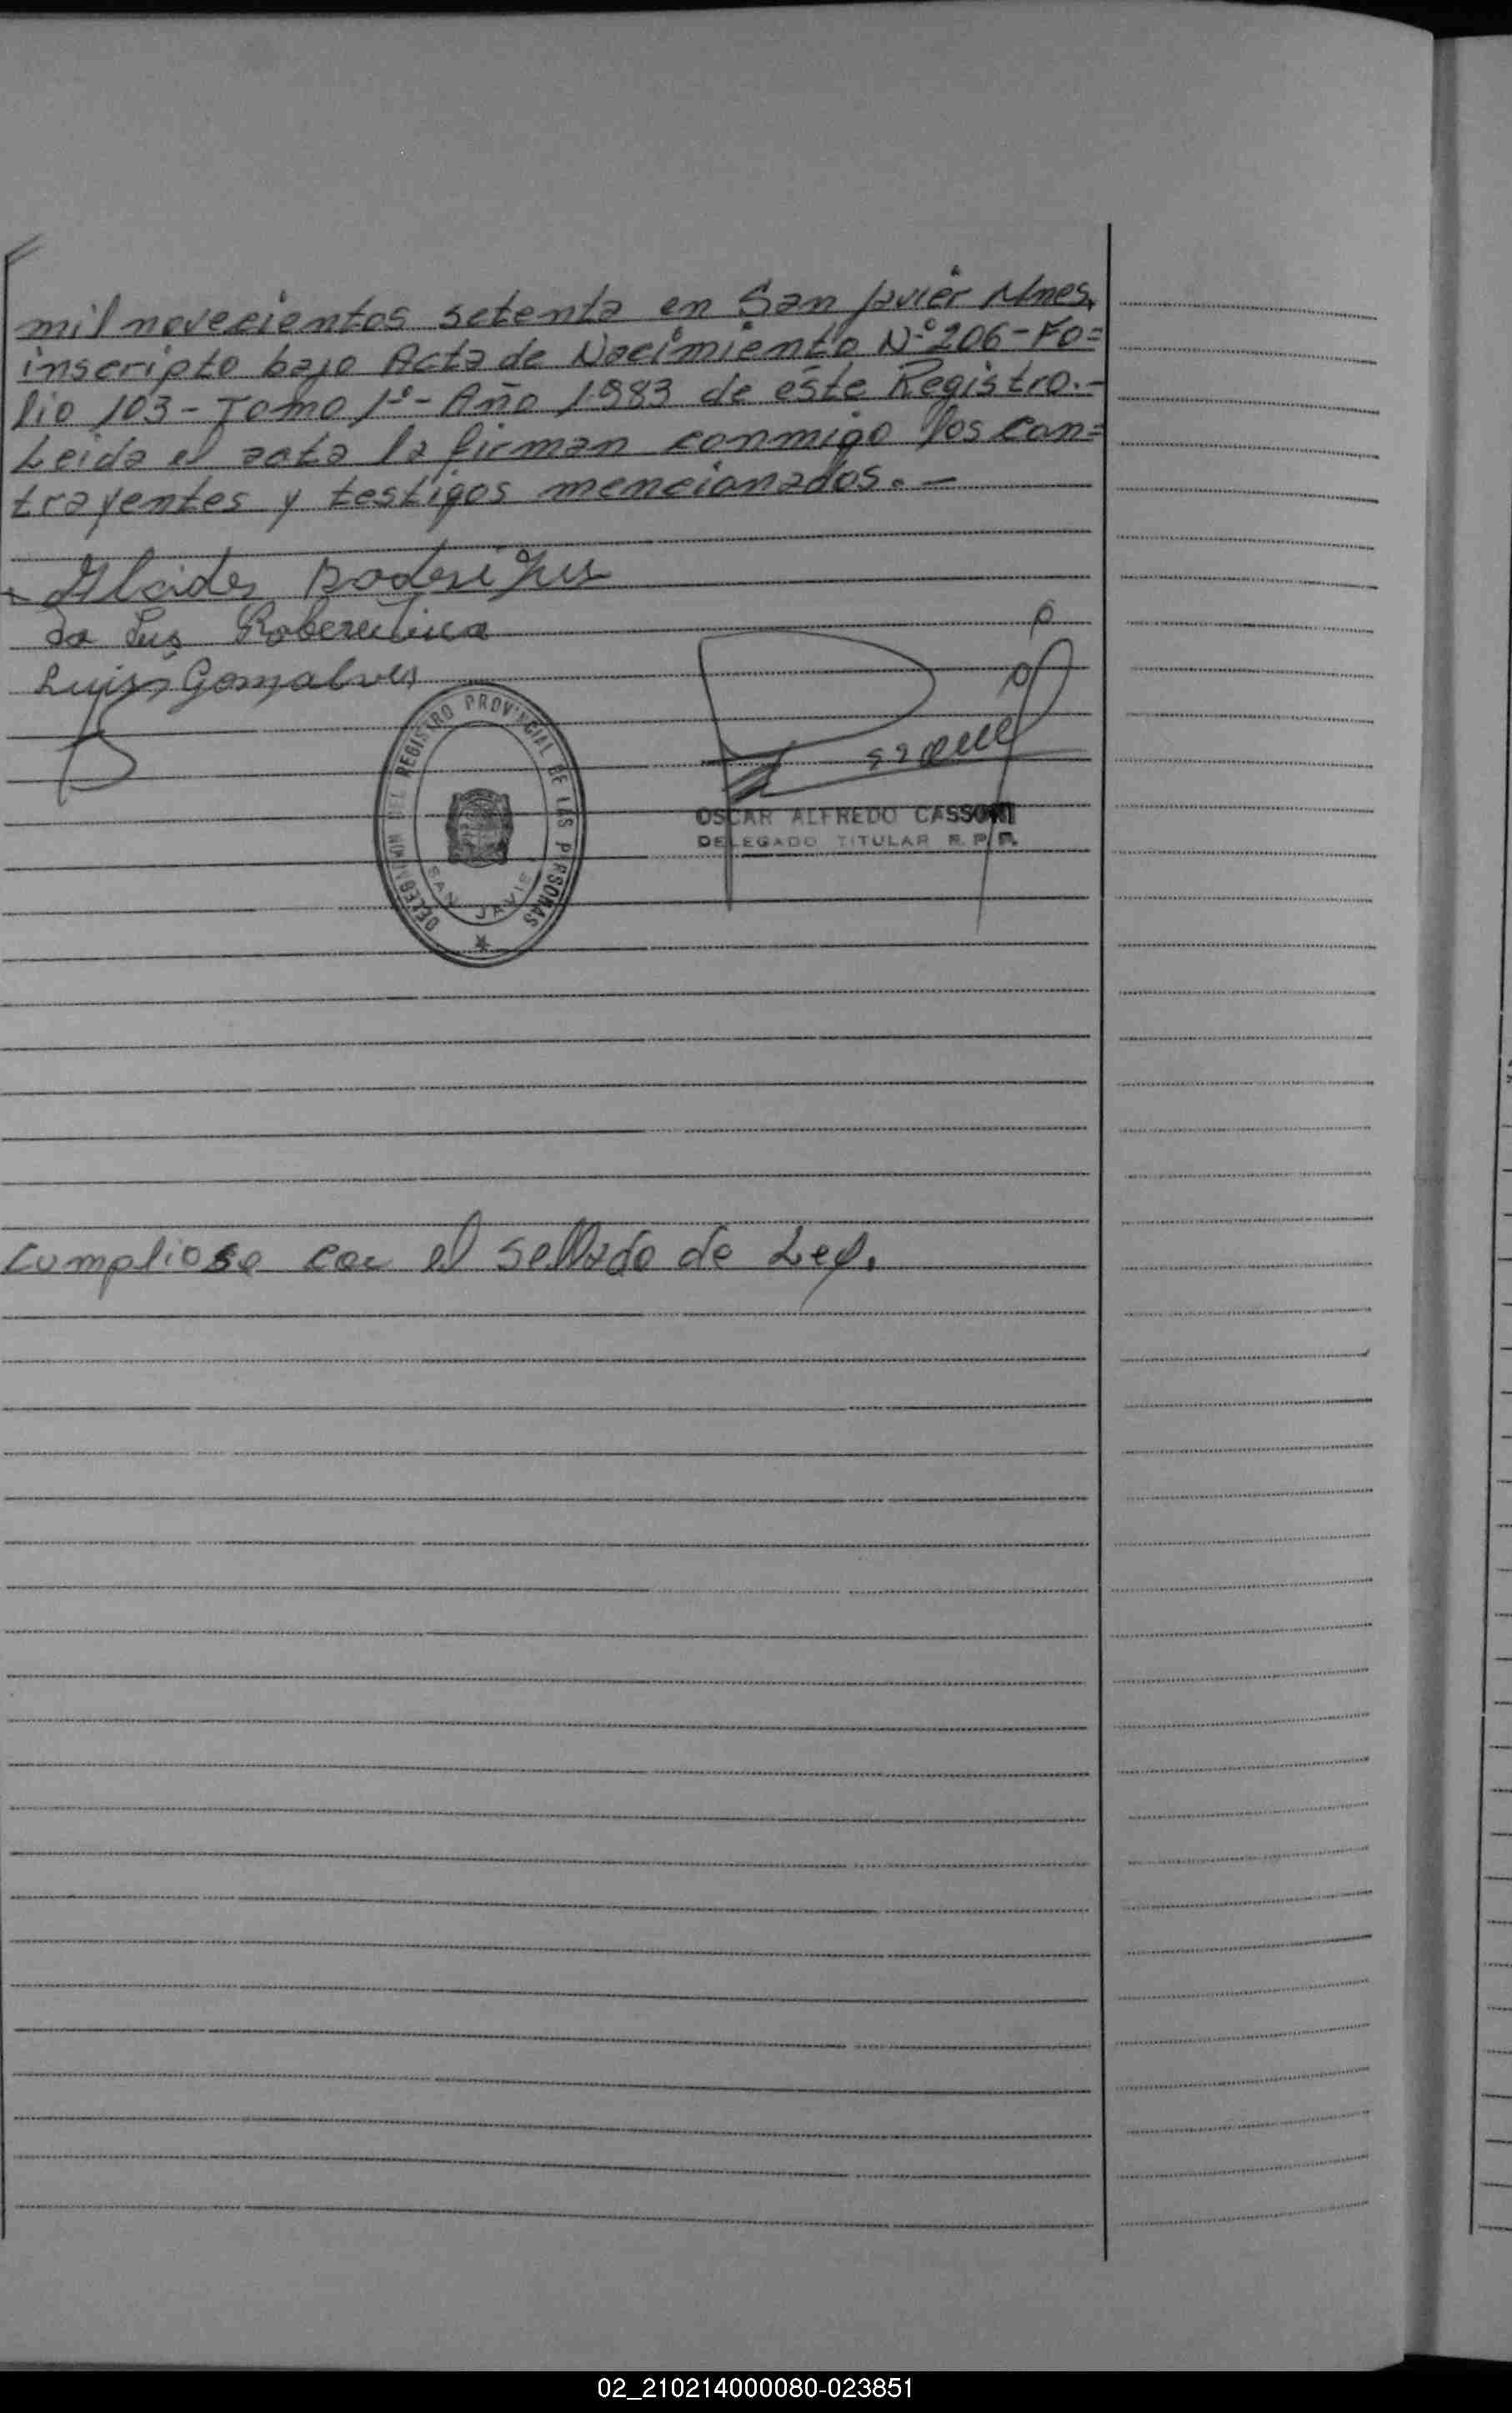 mil novecientos setenta en San Javier Mnes,
inscripto bajo Acta de Nacimiento Nº 206 - Fo=
lio 103 - Tomo 1º - Año 1983 de éste Registro.-
Leida el acta la firman conmigo los con=
trayentes y testigos mencionados. -
Alcides Roderigues
da Lus Roberutina
Luiz Gomçalves
DELEGACIÓN DEL REGISTRO PROVINCIAL DE LAS PERSONAS
SAN JAVIER
OSCAR ALFREDO CASSONI
DELEGADO TITULAR R. P. P.
Cumpliose con el sellado de Ley.
02_210214000080-023851